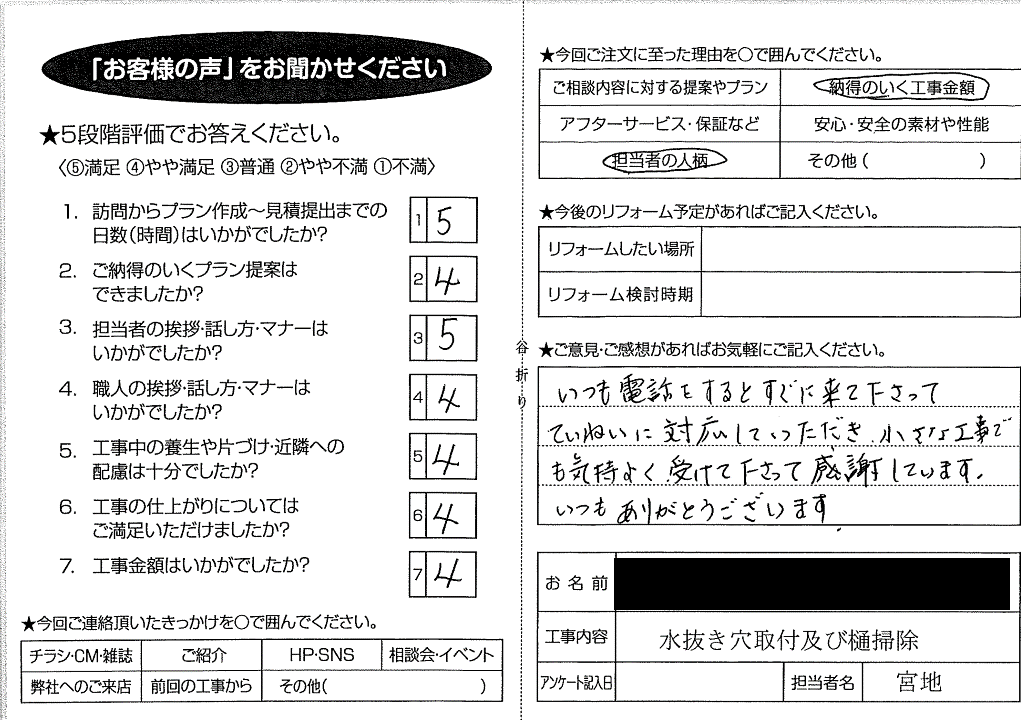 「お客様の声」をお聞かせください
★5段階評価でお答えください。
〈⑤満足 ④やや満足 ③普通 ②やや不満 ①不満〉
1. 訪問からプラン作成～見積提出までの
日数(時間)はいかがでしたか?
1 5
2. ご納得のいくプラン提案は
できましたか?
2 4
3. 担当者の挨拶・話し方・マナーは
いかがでしたか?
3 5
4. 職人の挨拶・話し方・マナーは
いかがでしたか?
4 4
5. 工事中の養生や片づけ・近隣への
配慮は十分でしたか?
5 4
6. 工事の仕上がりについては
ご満足いただけましたか?
6 4
7. 工事金額はいかがでしたか?
7 4
★今回ご連絡頂いたきっかけを○で囲んでください。
チラシ・CM・雑誌 ご紹介 HP・SNS 相談会・イベント
弊社へのご来店 前回の工事から その他( )
谷折り
★今回ご注文に至った理由を○で囲んでください。
ご相談内容に対する提案やプラン 納得のいく工事金額
アフターサービス・保証など 安心・安全の素材や性能
担当者の人柄 その他( )
★今後のリフォーム予定があればご記入ください。
リフォームしたい場所
リフォーム検討時期
★ご意見・ご感想があればお気軽にご記入ください。
いつも電話をするとすぐに来て下さって
ていねいに対応していただき、小さな工事で
も気持よく受けて下さって感謝しています。
いつもありがとうございます。
お名前
工事内容 水抜き穴取付及び樋掃除
アンケート記入日 担当者名 宮地